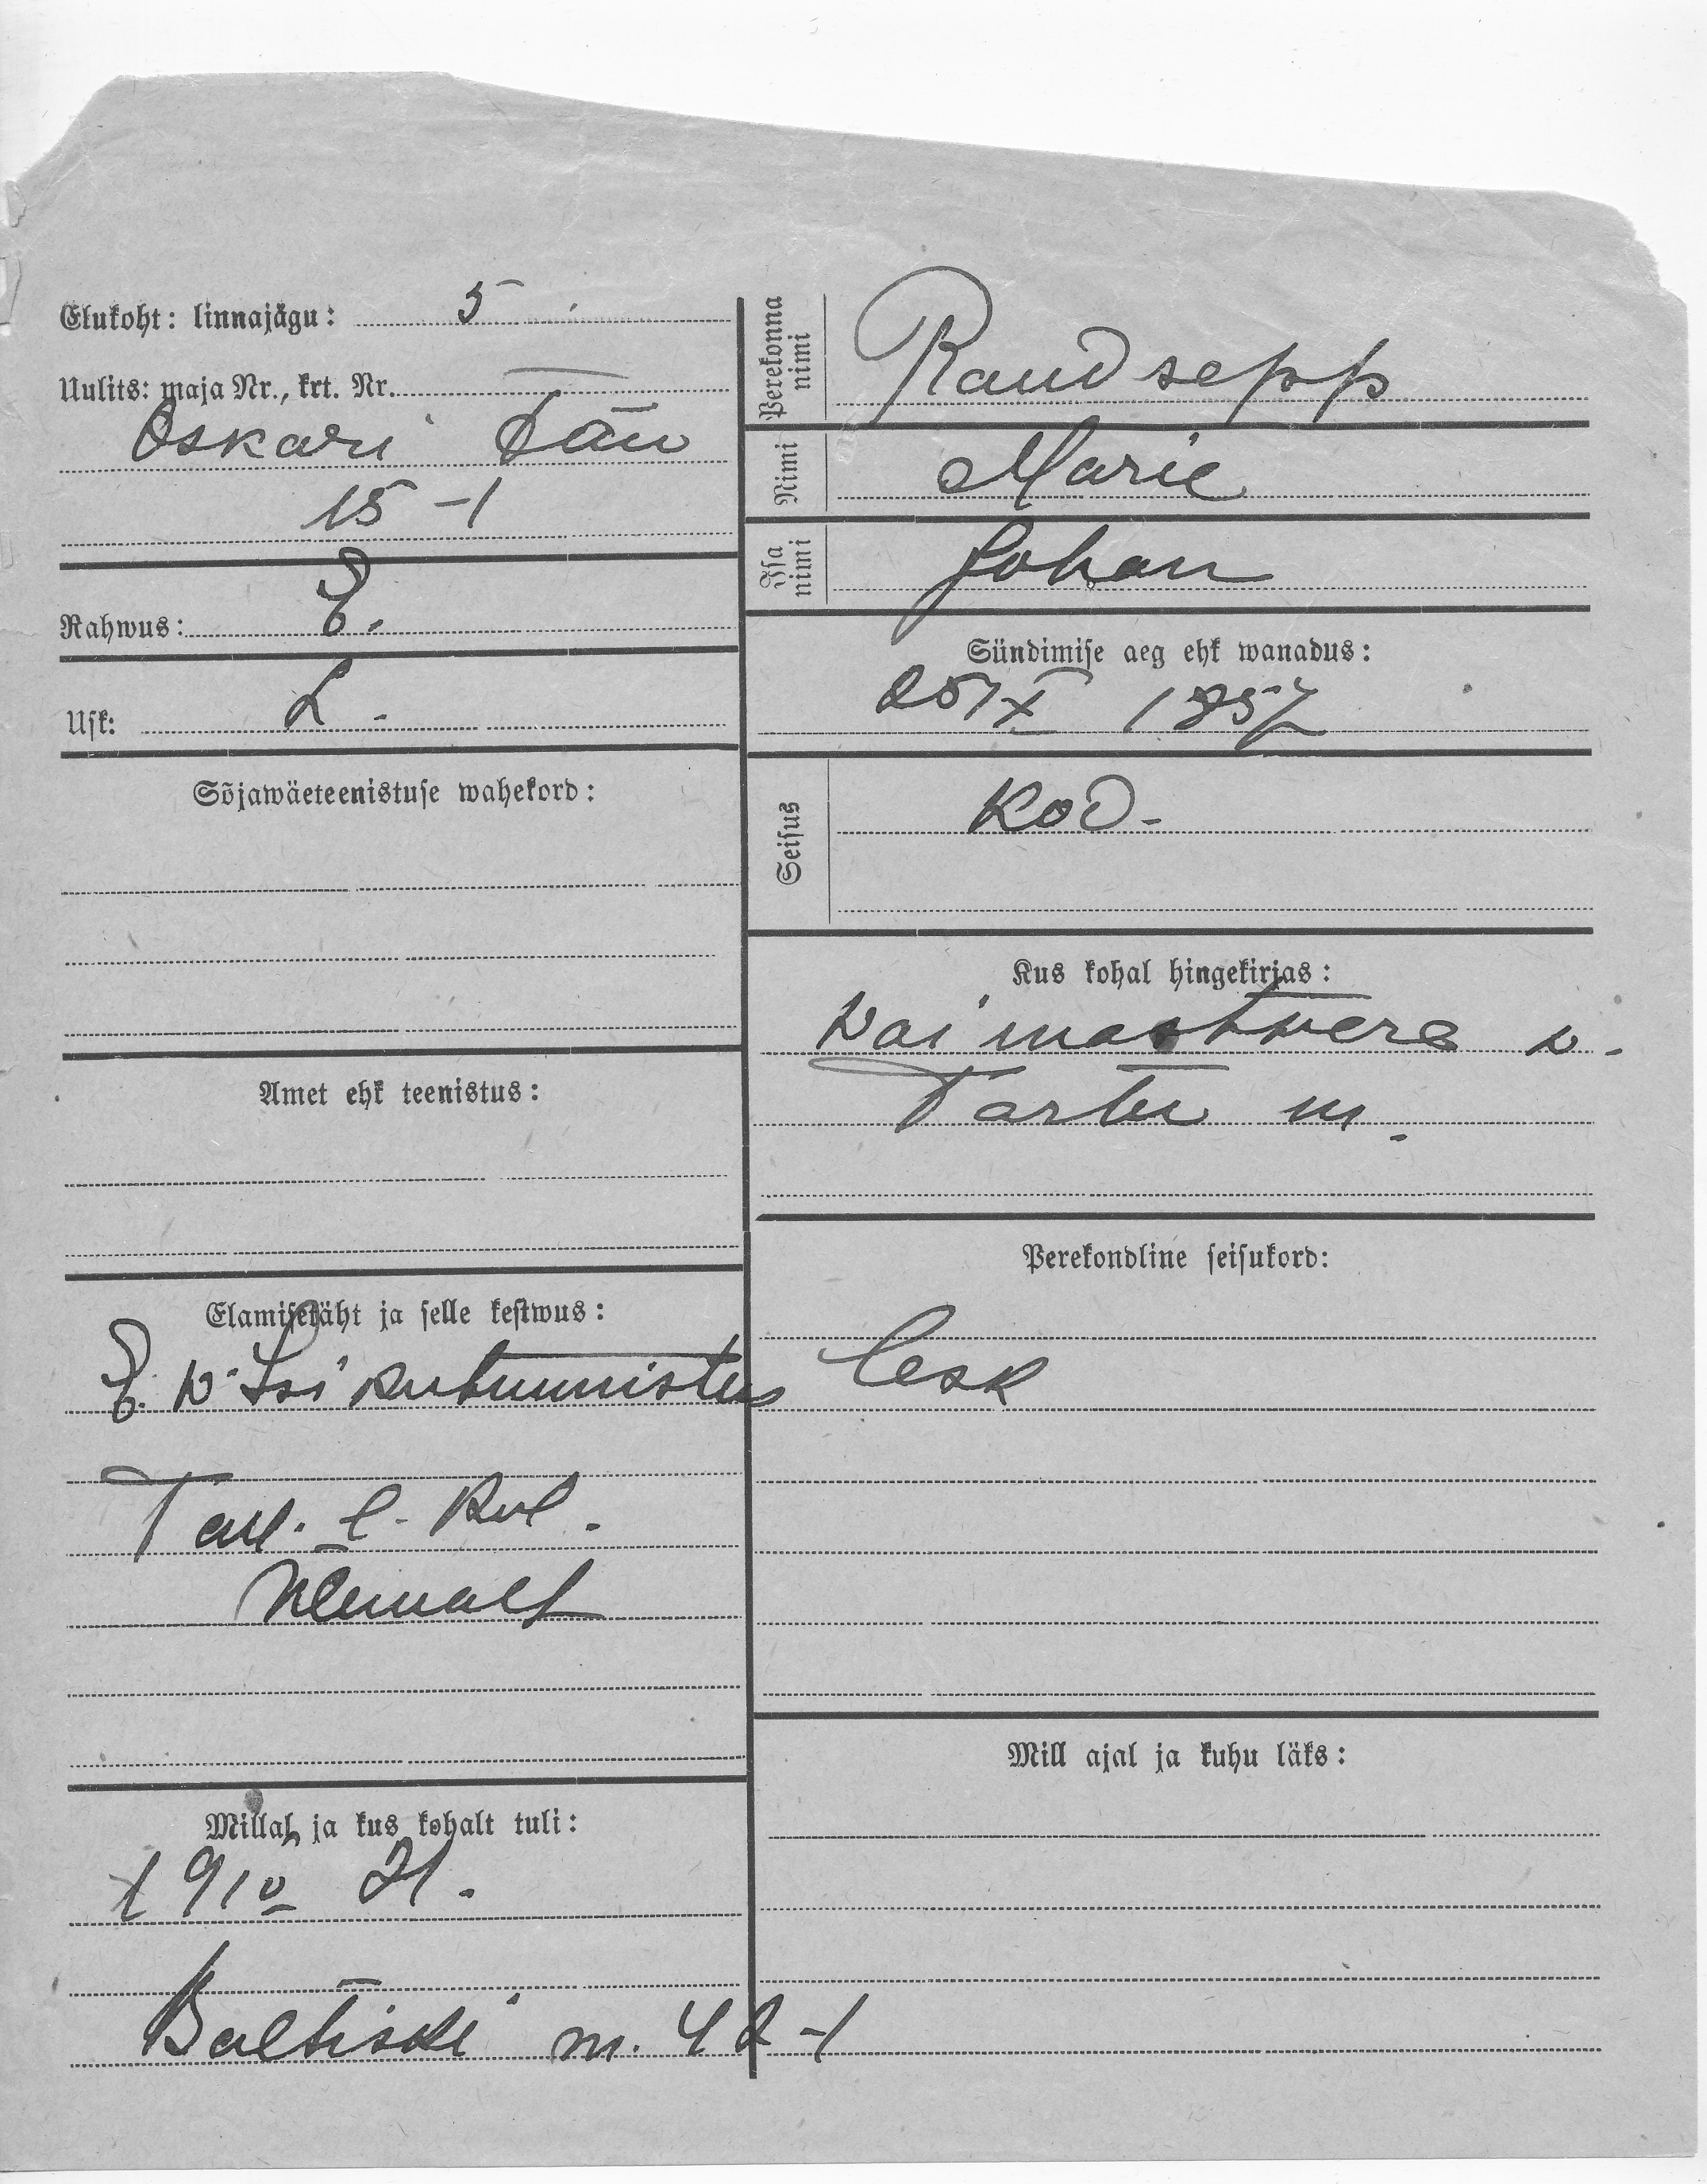 Elukoht: linnajägu: 5
Uulits: maja Nr., krt. Nr.
Oskari tän
15 -1
Rahwus: E.
Usk: L -
Sõjawäeteenistuse wahekord:
Amet ehk teenistus:
Elamisetäht ja selle kestwus:
E. W. Isikutunnistus
Tall. l. Kol.
Millal ja kus kohalt tuli:
21.
Baltiski m. 42-1
Perekonna nimi
Raudsepp
Nimi
Marie
Isa nimi
Johan
Sündimise aeg ehk wanadus:
25 IX 1857
Seisus
Kod-
Kus kohal hingekirjas:
Waimastwere w.
Tartu m.
Perekondline seisukord:
lesk
Mill ajal ja kuhu läks: